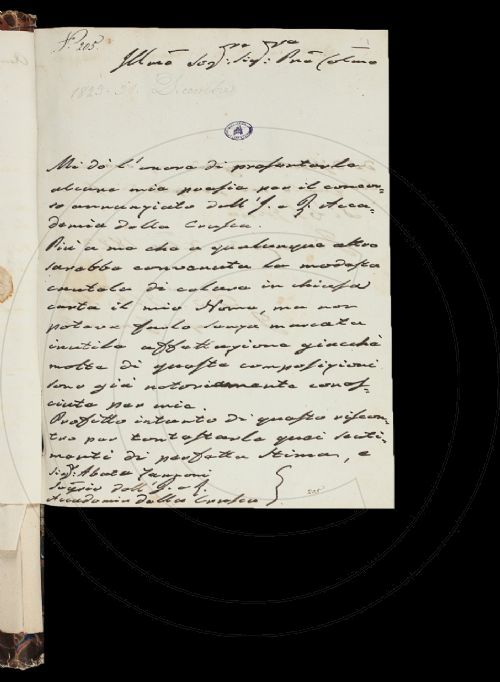 N.° 205.
Illmo Sigr: Sigr: Prne Colmo
1823. 31. Dicembre
Mi dò l'onore di presentarle
alcune mie poesie per il concor-
so annunziato dell'I. e R. Acca-
demia della Crusca.
Più a me che a qualunque altro
sarebbe convenuta la modesta
cautela di celare in chiusa
carta il mio Nome, ma non
poteva farlo senza marcata
inutile affettazione giacchè
molte di queste composizioni
sono già notoriamente conos-
ciute per mie.
Profitto intanto di questo riscon-
tro per contestarle quei senti-
menti di perfetta stima, e
Sigr: Abate
Segrio dell'I. e R.
Accademia della Crusca
205